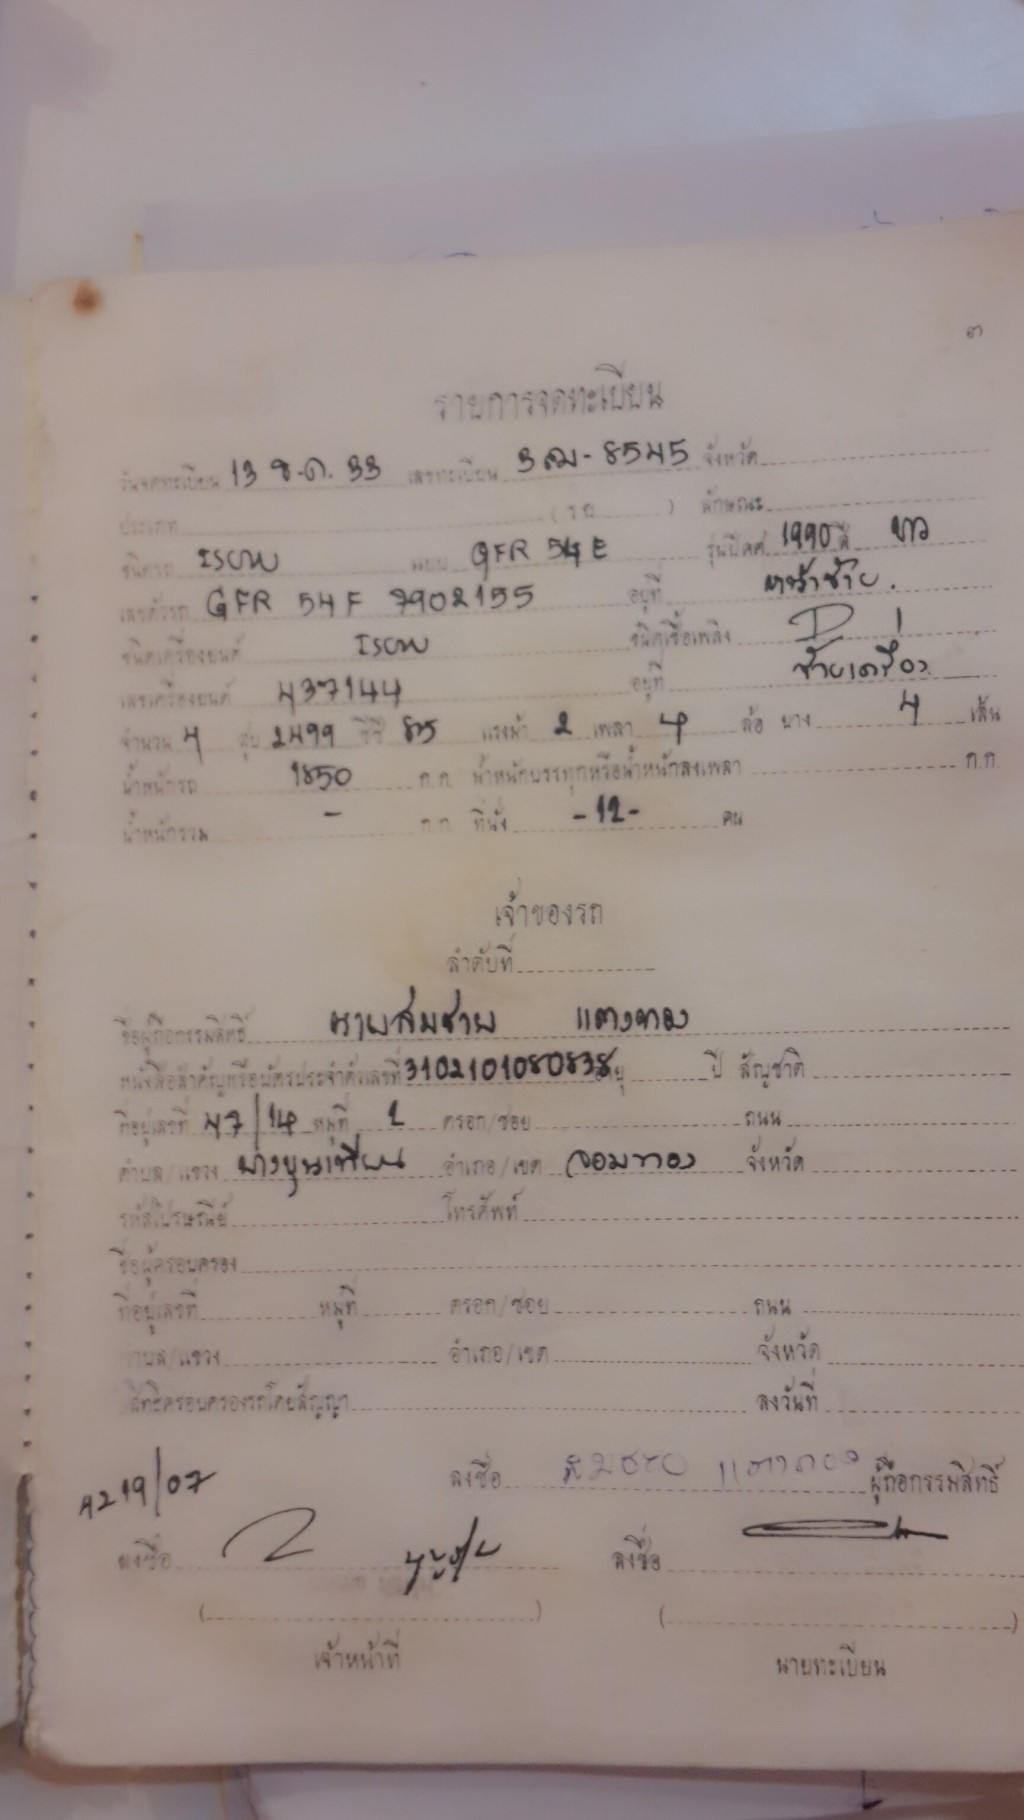 ๓
รายการจดทะเบียน
วันจดทะเบียน 13 ธ.ค. 33 เลขทะเบียน 3ฒ-8545 จังหวัด
ประเภท (รย ) ลักษณะ
ชนิดรถ ISUZU แบบ GFR 54 E รุ่นปีคศ 1990 สี ขาว
เลขตัวรถ GFR 54F 7902155 อยู่ที่ หน้าซ้าย.
ชนิดเครื่องยนต์ ISUZU ชนิดเชื้อเพลิง D
เลขเครื่องยนต์ 437144 อยู่ที่ ซ้ายเครื่อง
จำนวน 4 สูบ 2499 ซีซี แรงม้า 2 เพลา 4 ล้อ ยาง 4 เส้น
น้ำหนักรถ 1850 ก.ก. น้ำหนักบรรทุกหรือน้ำหนักลงเพลา ก.ก.
น้ำหนักรวม - ก.ก. ที่นั่ง -12- คน
เจ้าของรถ
ลำดับที่
ชื่อผู้ถือกรรมสิทธิ์ นายสมชาย แตงทอง
หนังสือสำคัญหรือบัตรประจำตัวเลขที่ 3102101080838 อายุ ปี สัญชาติ
ที่อยู่เลขที่ 47/14 หมู่ที่ 1 ตรอก/ซอย ถนน
ตำบล/แขวง บางขุนเทียน อำเภอ/เขต จอมทอง จังหวัด
รหัสไปรษณีย์ โทรศัพท์
ชื่อผู้ครอบครอง
ที่อยู่เลขที่ หมู่ที่ ตรอก/ซอย ถนน
ตำบล/แขวง อำเภอ/เขต จังหวัด
สิทธิครอบครองรถโดยสัญญา ลงวันที่
ลงชื่อ สมชาย แตงทอง ผู้ถือกรรมสิทธิ์
A219/07
ลงชื่อ ลงชื่อ
( ) ( )
เจ้าหน้าที่ นายทะเบียน